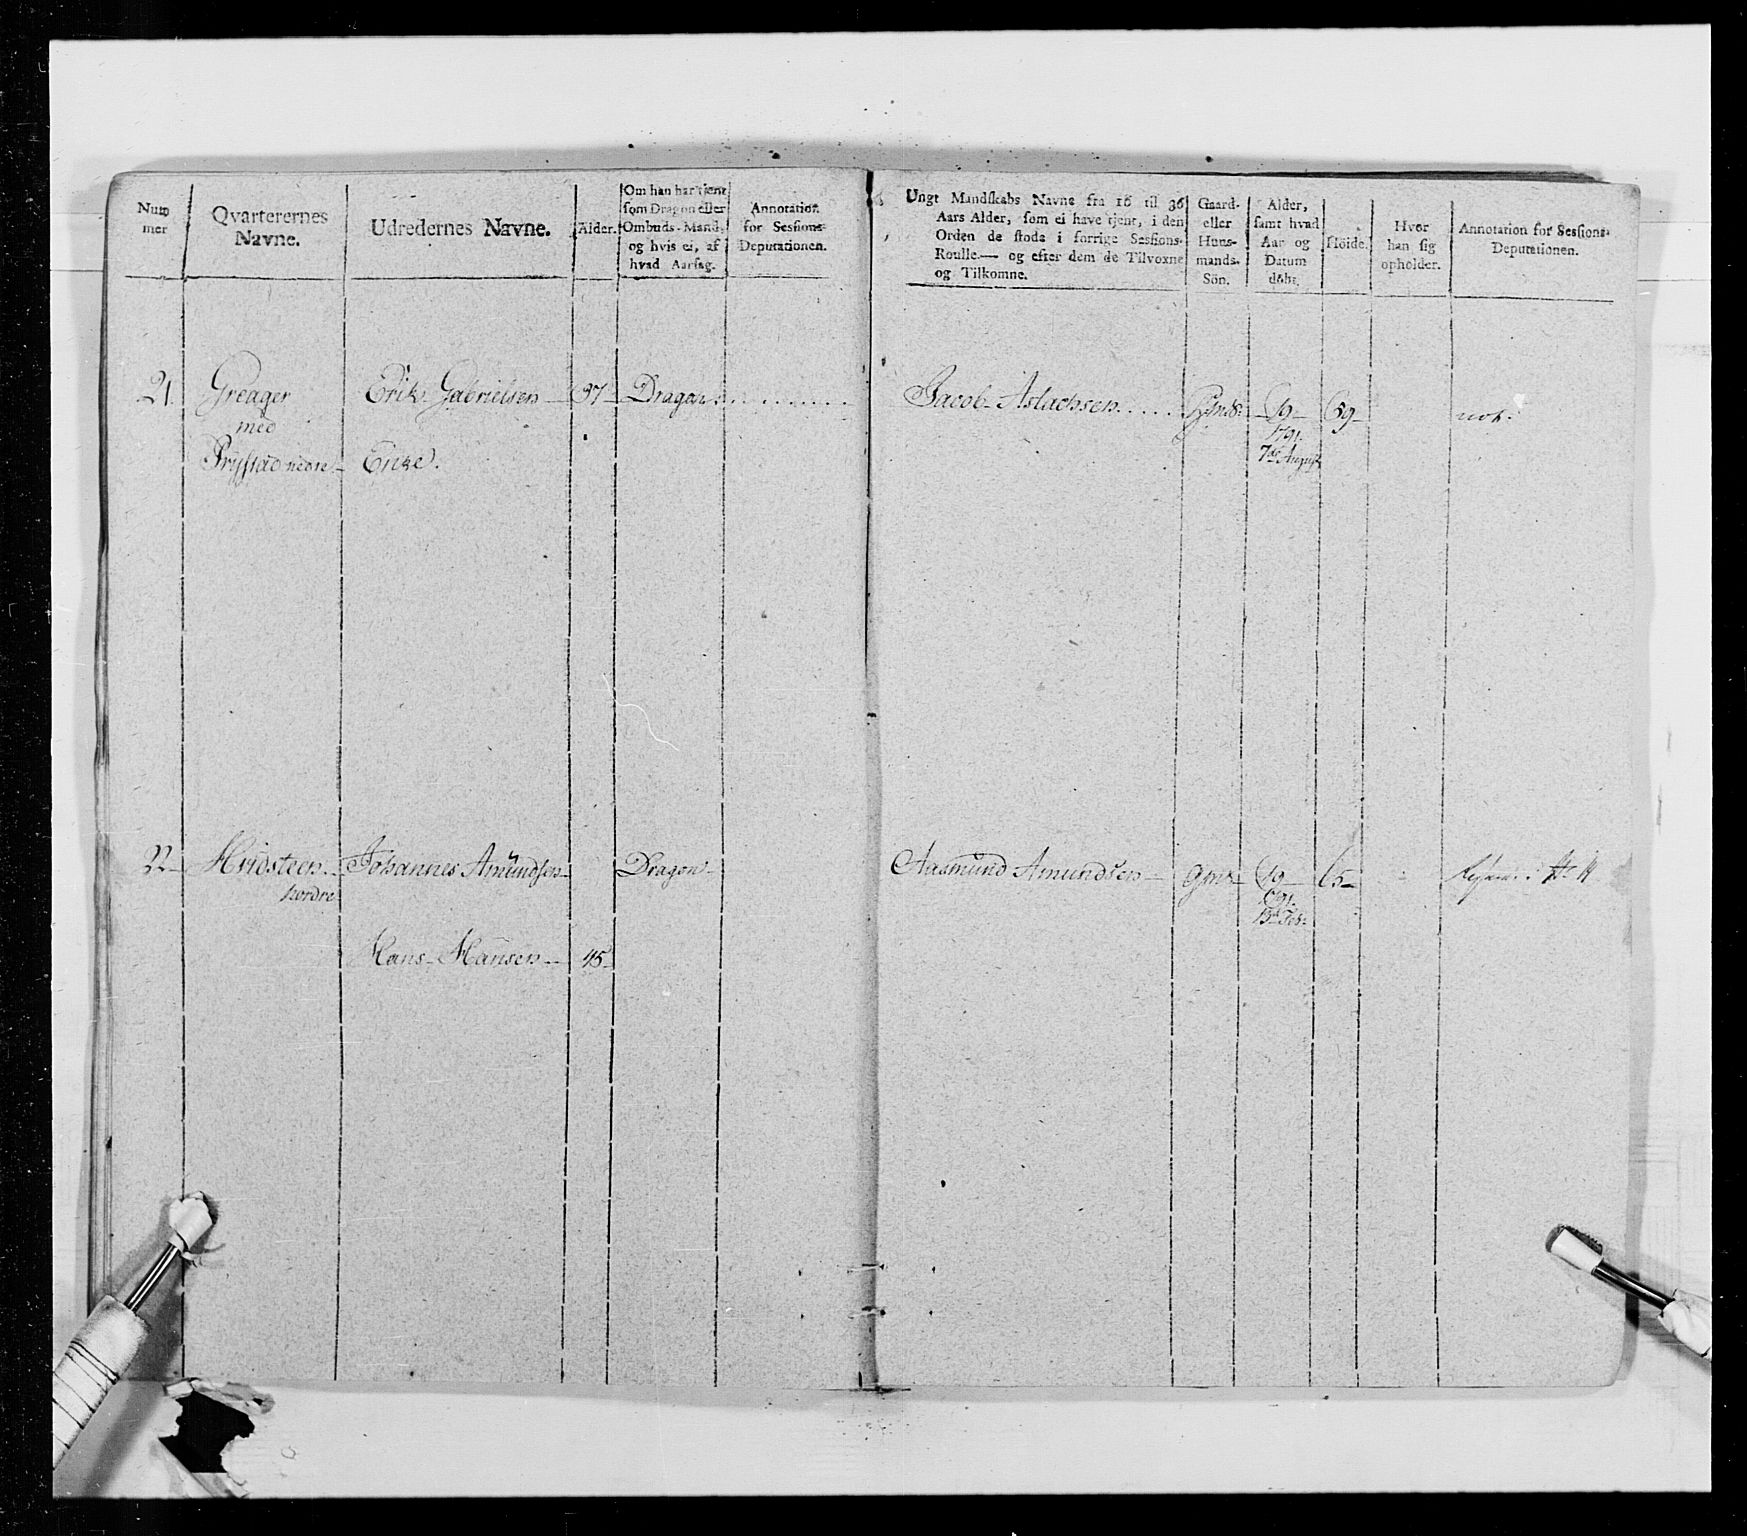 Num
mer
Qvarterernes
Navne.
Udredernes Navne.
Alder.
Om han har tjent
som Dragon eller
Ombuds-Mand,
og hvis ei, af
hvad Aarsag.
Annotation
for Sessions-
Deputationen.
Ungt Mandskabs Navne fra 16 til 36
Aars Alder, som ei have tjent, i den
Orden de stode i forrige Sessions-
Roulle.— og efter dem de Tilvoxne
og Tilkomne.
Gaard-
eller
Huus-
mands-
Sön.
Alder,
samt hvad
Aar og
Datum
döbt.
Höide.
Hvor
han sig
opholder.
Annotation for Sessions-
Deputationen.
21. Greager Erik Gabrielsen 37 Dragon Jacob Aslachsen 19 59
med 1791.
nedre Enke. 7de August
22 Hvidsteen Johannes Amundsen Dragon Aasmund Amundsen Gmds 19
nordre 1791.
13de Feb.
Hans Hansen 45